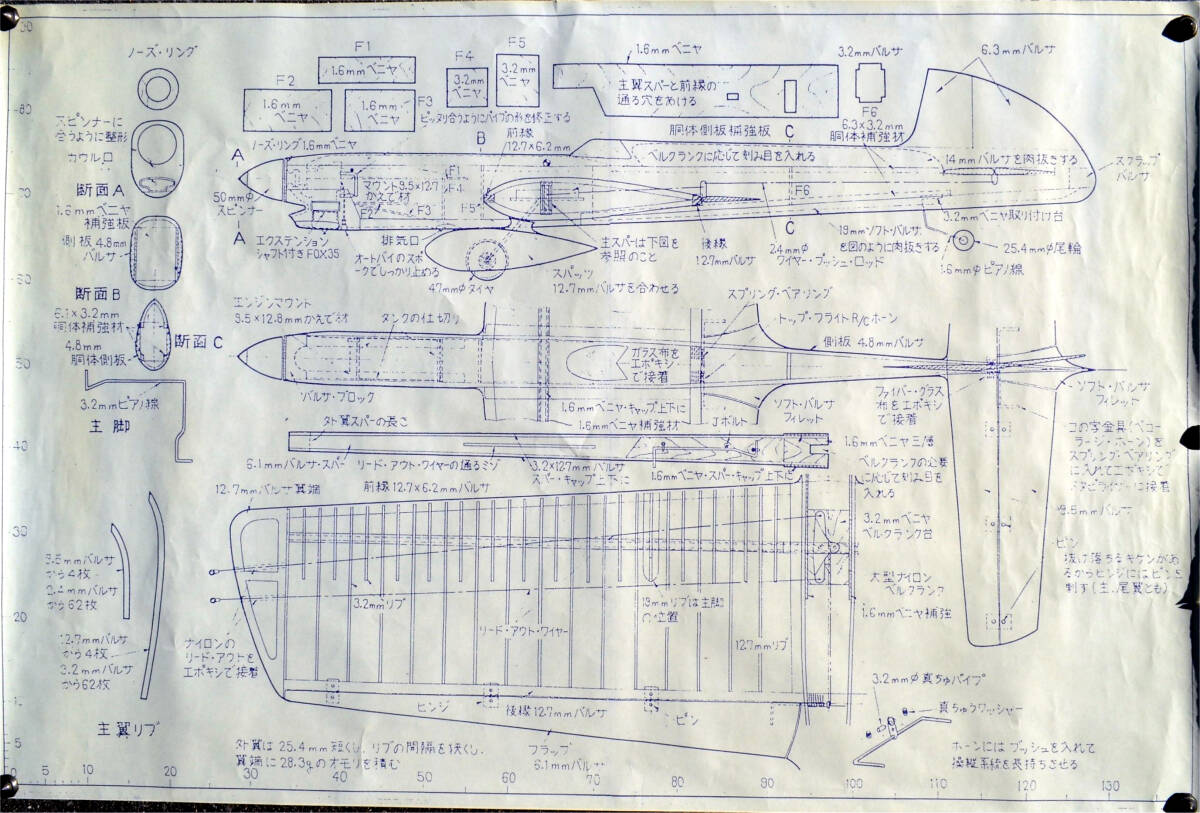 ノーズ・リング
F1
1.6mmベニヤ
F2
1.6mm
ベニヤ
1.6mm
ベニヤ
F3
F4
3.2mm
ベニヤ
F5
3.2mm
ベニヤ
ピッタリ合うようにパイプの形を修正する
1.6mmベニヤ
主翼スパーと前縁の
通る穴をあける
胴体側板補強板
3.2mmバルサ
F6
6.3×3.2mm
胴体補強材
6.3mmバルサ
スピンナーに
合うように整形
カウル口
断面A
1.6mmベニヤ
補強板
側板4.8mm
バルサ
断面B
6.1×3.2mm
胴体補強材
4.8mm
胴体側板
断面C
3.2mmピアノ線
主脚
ノーズ・リング1.6mmベニヤ
A
A
50mmφ
スピンナー
マウント9.5×12.7
かえで材
F1
F4
F2
F3
F5
B
前縁
12.7×6.2mm
ベルクランクに応じて刻み目を入れる
C
F6
C
14mmバルサを肉抜きする
スクラップ
バルサ
エクステンション
シャフト付きFOX35
排気口
オートバイのスポ
ークでしっかり止める
47mmφタイヤ
スパッツ
12.7mmバルサを合わせる
主スパーは下図を
参照のこと
後縁
12.7mmバルサ
2.4mmφ
ワイヤー・プッシュ・ロッド
19mmソフト・バルサ
を図のように肉抜きする
3.2mmベニヤ取り付け台
25.4mmφ尾輪
1.6mmφピアノ線
エンジンマウント
9.5×12.8mmかえで材
タンクの仕切り
バルサ・ブロック
ガラス布を
エポキシ
で接着
スプリング・ベアリング
トップ・フライトR/Cホーン
側板4.8mmバルサ
1.6mmベニヤ・キャップ上下に
1.6mmベニヤ補強材
ソフト・バルサ
フィレット
ファイバー・グラス
布をエポキシ
で接着
ソフト・バルサ
フィレット
外翼スパーの長さ
Jボルト
6.1mmバルサ・スパー
リード・アウト・ワイヤーの通るミゾ
3.2×12.7mmバルサ
スパー・キャップ上下に
1.6mmベニヤ・スパー・キャップ上下に
1.6mmベニヤ三層
ベルクランクの必要
に応じて刻み目を
入れる
コの字金具(ベコ
ラージ・ホーン)を
スプリング・ベアリング
に入れてエポキシで
接着
9.5mmバルサ
ピン
抜け落ちるキケンがあ
るからヒンジにはピンを
刺す(主、尾翼とも)
12.7mmバルサ翼端
前縁12.7×6.2mmバルサ
3.2mmベニヤ
ベルクランク台
大型ナイロン
ベルクランク
1.6mmベニヤ補強
3.2mmリブ
リード・アウト・ワイヤー
19mmリブは主脚
の位置
12.7mmリブ
ナイロンの
リード・アウトを
エポキシで接着
ヒンジ
後縁12.7mmバルサ
ピン
フラップ
6.1mmバルサ
バルサ
から4枚
バルサ
から62枚
12.7mmバルサ
から4枚
3.2mmバルサ
から62枚
主翼リブ
外翼は25.4mm短くし、リブの間隔を狭くし、
翼端に28.3gのオモリを積む
3.2mmφ真ちゅうパイプ
真ちゅうワッシャー
ホーンにはブッシュを入れて
操縦系統を長持ちさせる
80
70
60
50
40
30
20
5
0
5
10
20
30
40
50
60
70
80
90
100
110
120
130